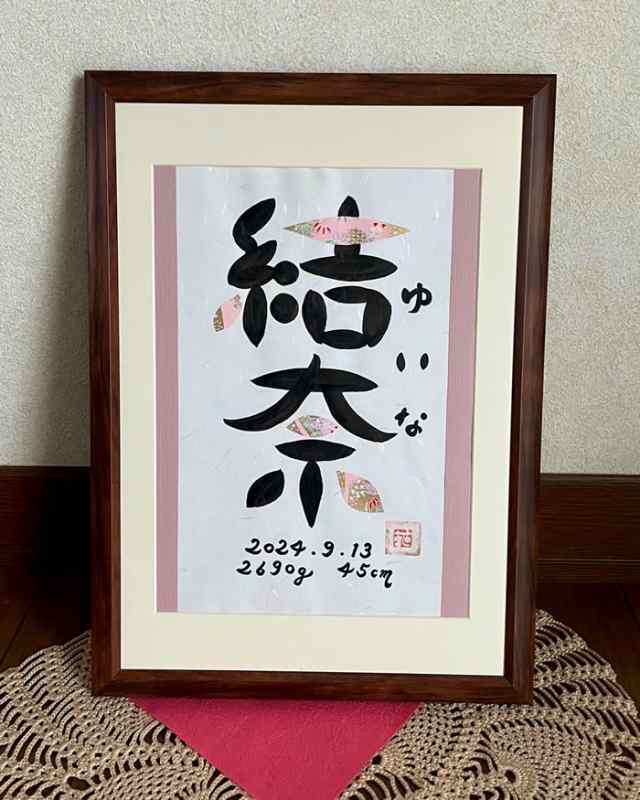 結奈
ゆいな
2024.9.13
2690g 45cm